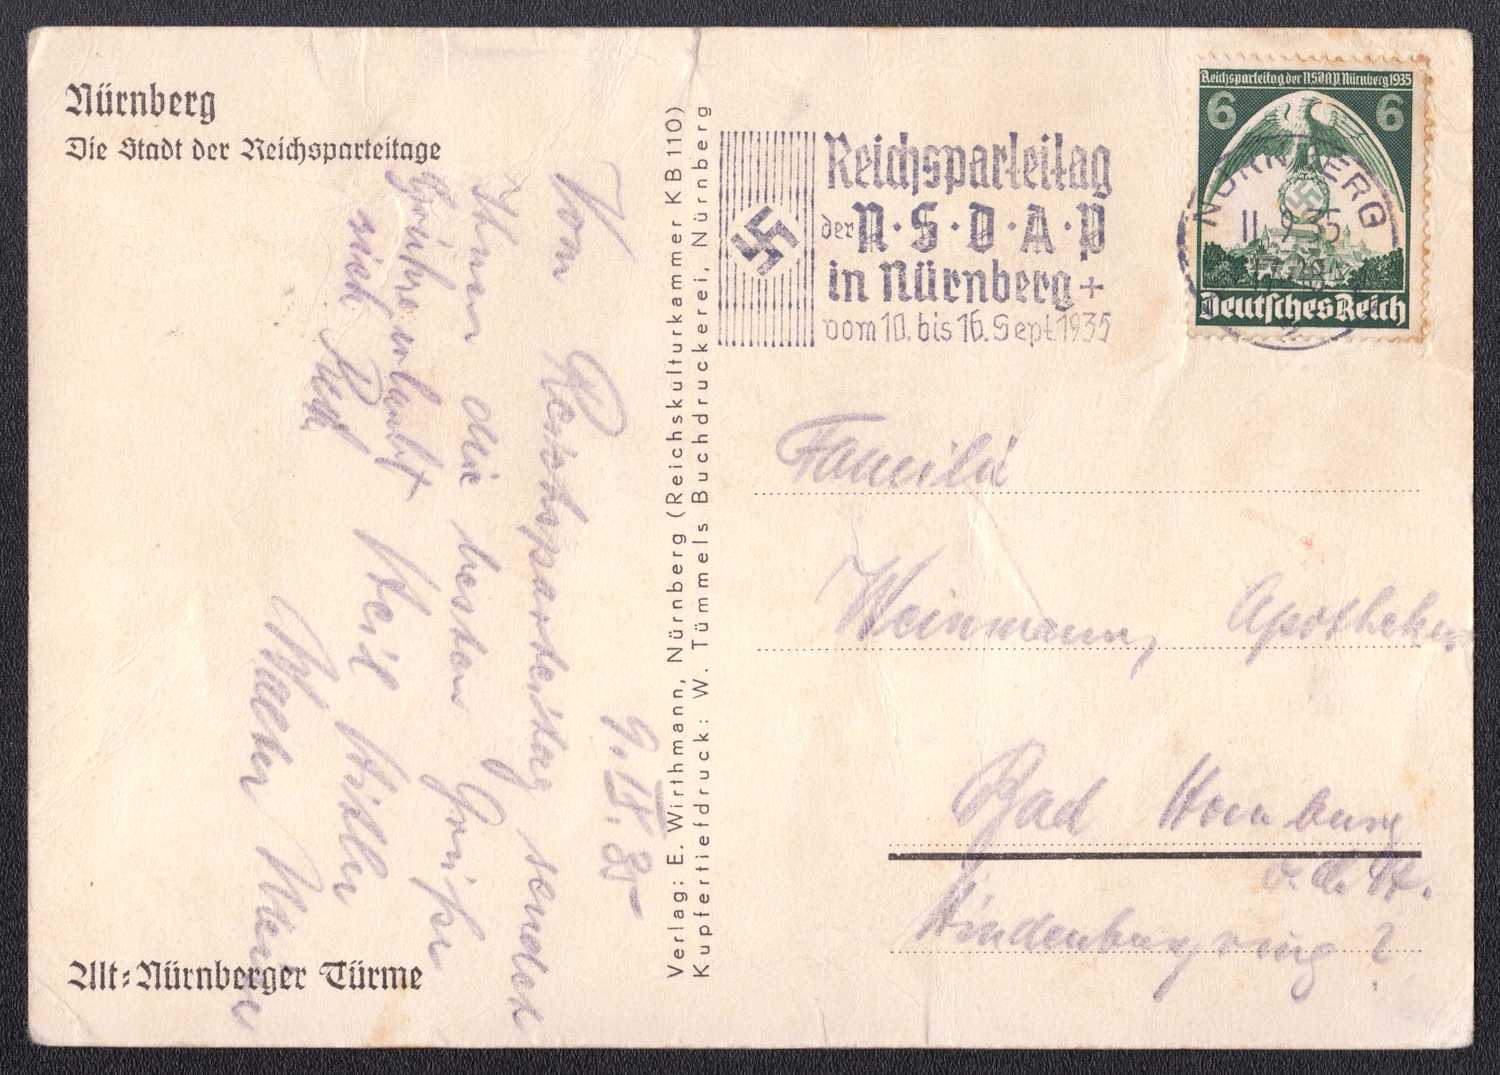 Nürnberg
Die Stadt der Reichsparteitage
9. IX. 35
Vom Reichsparteitag sendet
Ihnen die besten Grüße
Heil Hitler
Walter
Alt-Nürnberger Türme
Verlag: E. Wirthmann, Nürnberg (Reichskulturkammer KB110)
Kupfertiefdruck: W. Tümmels Buchdruckerei, Nürnberg
Reichsparteitag
der N·S·D·A·P
in Nürnberg +
vom 10. bis 16. Sept. 1935
Reichsparteitag der NSDAP Nürnberg 1935
6 6
Deutsches Reich
NÜRNBERG
11.9.35
Familie
Weinmann, Apotheker
Bad Homburg
v.d.H.
Hindenburgring 2